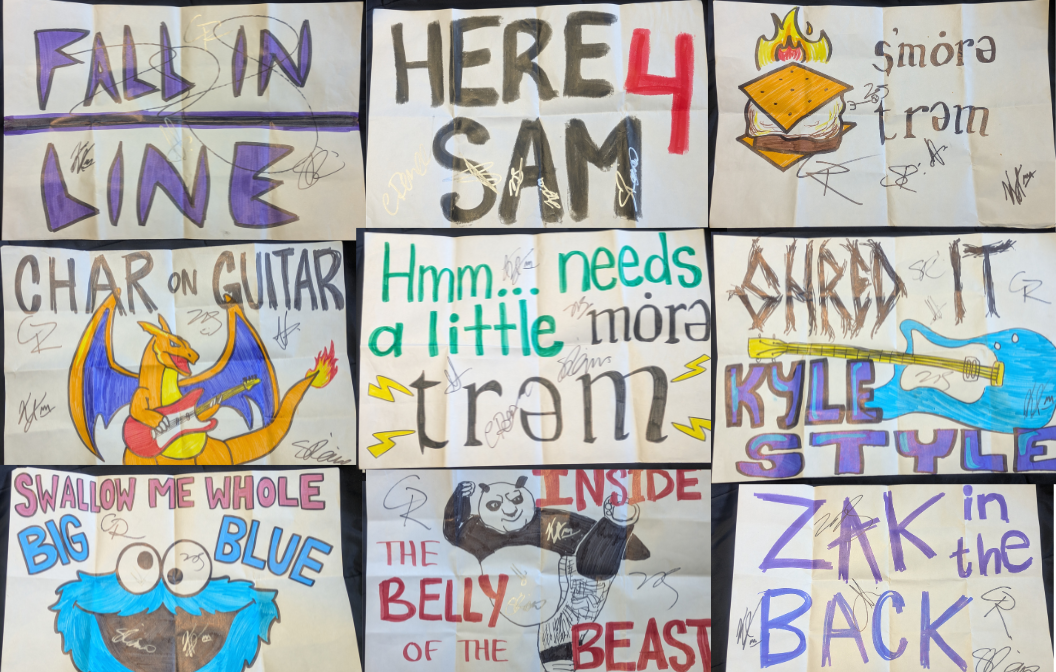 FALL IN
LINE
HERE 4
SAM
s'mȯrə
trəm
CHAR ON GUITAR
Hmm... needs
a little mȯrə
trəm
SHRED IT
KYLE
STYLE
SWALLOW ME WHOLE
BIG BLUE
INSIDE
THE
BELLY
OF THE BEAST
ZAK in
the
BACK